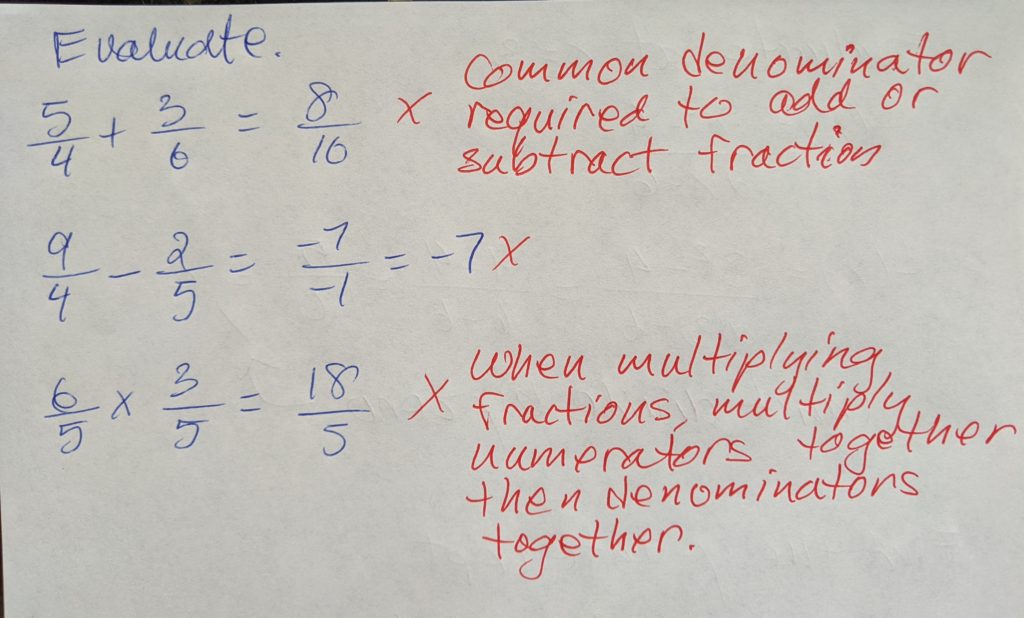 Evaluate.
5/4 + 3/6 = 8/10 X
Common denominator
required to add or
subtract fraction
9/4 - 2/5 = -7/-1 = -7 X
6/5 x 3/5 = 18/5 X
When multiplying
fractions, multiply
numerators together
then denominators
together.